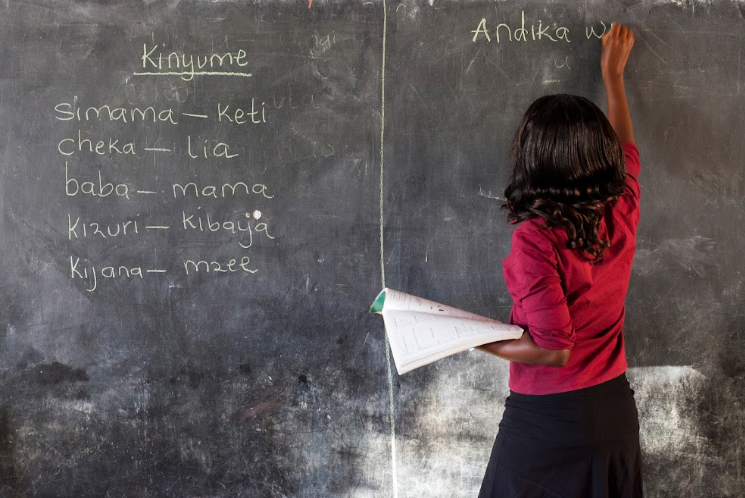 Kinyume
simama — keti
cheka — lia
baba — mama
kizuri — kibaya
kijana — mzee
Andika w